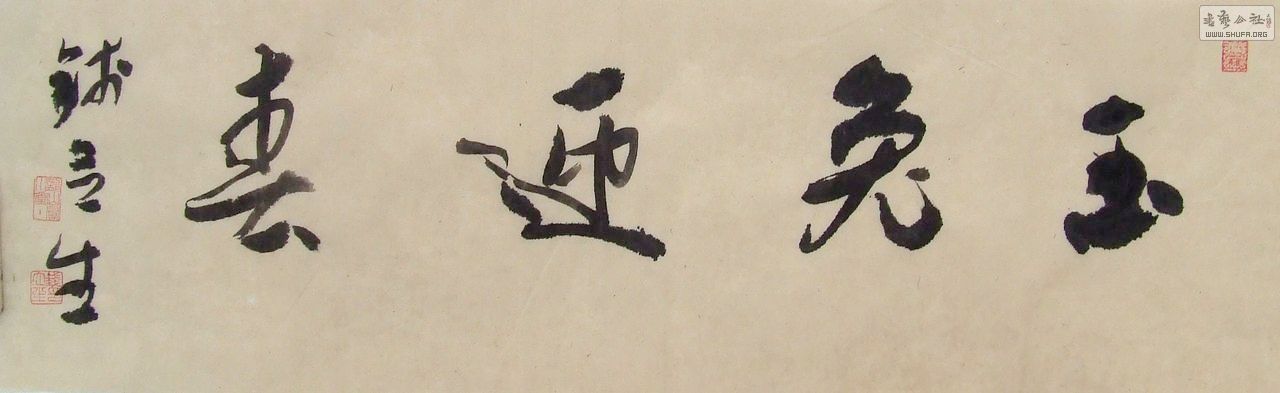 玉兔迎春
钱立生
書藝公社
WWW.SHUFA.ORG